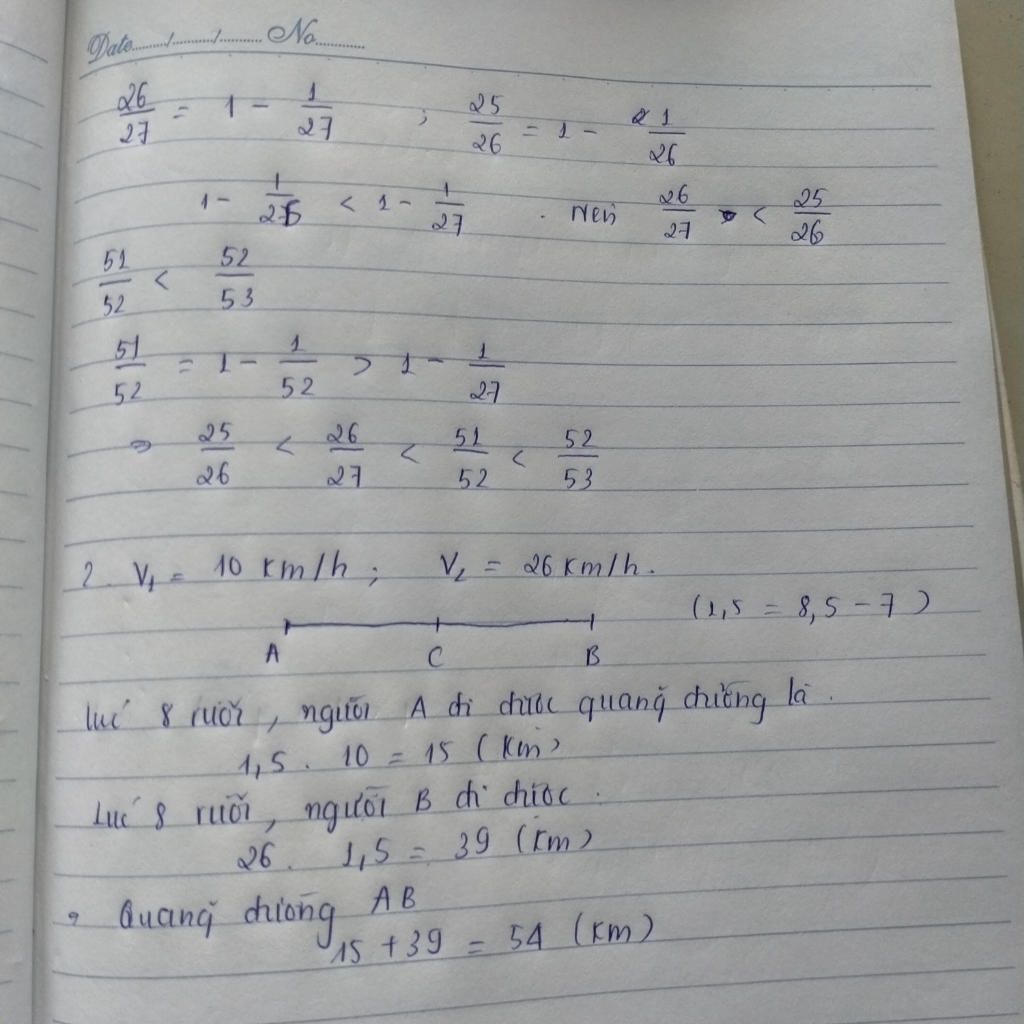 Date....../......../........ No...........
26/27 = 1 - 1/27 ; 25/26 = 1 - 1/26
1 - 1/26 < 1 - 1/27 . Nên 26/27 < 25/26
51/52 < 52/53
51/52 = 1 - 1/52 > 1 - 1/27
⇒ 25/26 < 26/27 < 51/52 < 52/53
2. V₁ = 10 km/h ; V₂ = 26 km/h.
(1,5 = 8,5 - 7)
A C B
Lúc 8 rưỡi, người A đi được quãng đường là.
1,5 . 10 = 15 (km)
Lúc 8 rưỡi, người B đi được.
26 . 1,5 = 39 (km)
Quãng đường AB
15 + 39 = 54 (km)